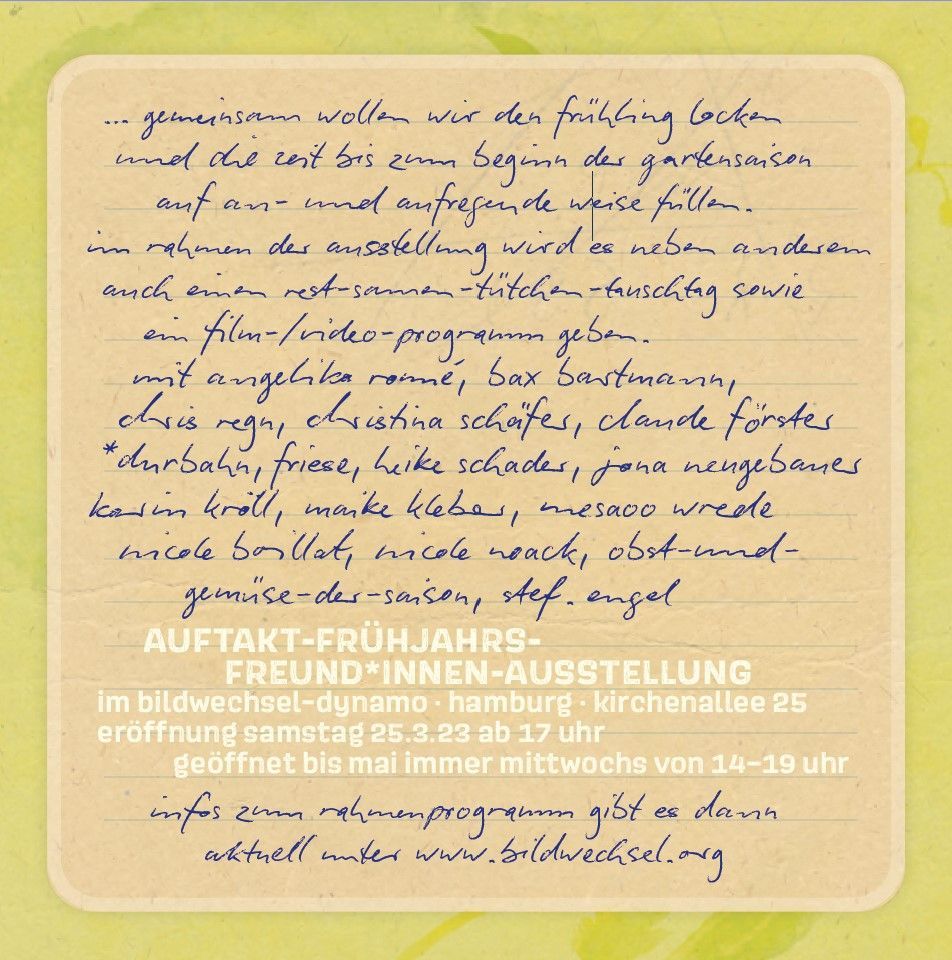 ... gemeinsam wollen wir den frühling locken
und die zeit bis zum beginn der gartensaison
auf an- und aufregende weise füllen.
im rahmen der ausstellung wird es neben anderem
auch einen rest-samen-tütchen-tauschtag sowie
ein film-/video-programm geben.
mit angelika rommé, bax bartmann,
chris regn, christina schäfer, claude förster
*durbahn, friese, heike schader, jona neugebauer
karin kröll, maike kleber, mesaoo wrede
nicole boillat, nicole noack, obst-und-
gemüse-der-saison, stef. engel
AUFTAKT-FRÜHJAHRS-
FREUND*INNEN-AUSSTELLUNG
im bildwechsel-dynamo · hamburg · kirchenallee 25
eröffnung samstag 25.3.23 ab 17 uhr
geöffnet bis mai immer mittwochs von 14–19 uhr
infos zum rahmenprogramm gibt es dann
aktuell unter www.bildwechsel.org